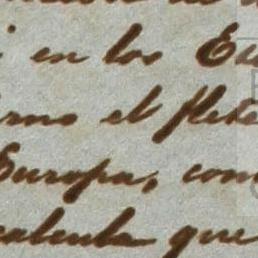 i en los Es
rmo el flete
Europa, com
calcula que